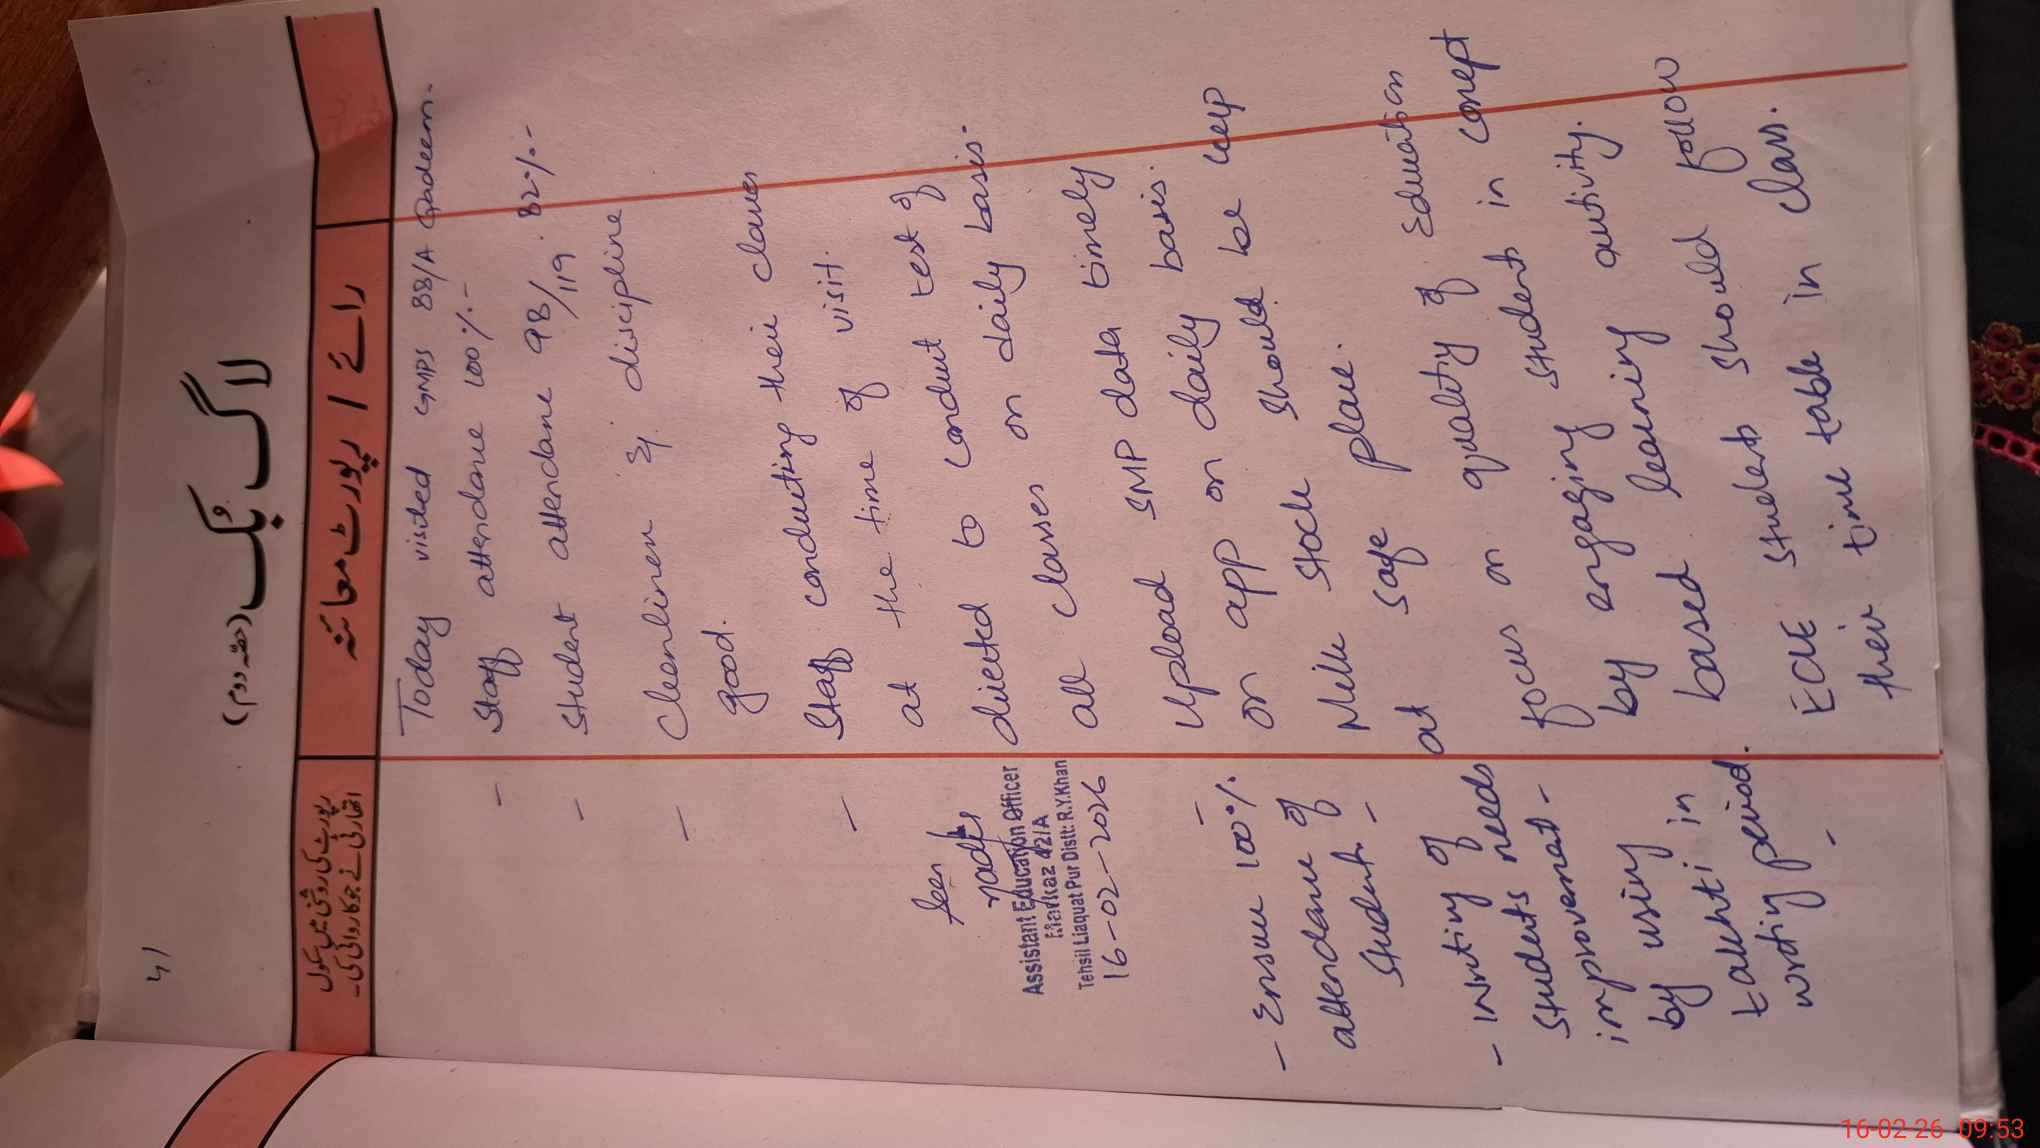 41
لاگ بُک (حصہ دوم)
رائے / رپورٹ معائنہ
رپورٹ کی روشنی میں سکول
اتھارٹی نے جو کارروائی کی۔
Today visited GMPS 88/A Qadeem.
- Staff attendance 100%.-
- Student attendance 98/119. 82%.-
- Cleanliness & discipline
good.
- Staff conducting their classes
at the time of visit.
directed to conduct test of
all classes on daily basis.
- Upload SMP data timely
on app on daily basis.
Milk stock should be keep
at safe place.
focus on quality of Education
by engaging students in concept
based learning activity.
ECE students should follow
their time table in class.
Seen
Assistant Education Officer
Markaz 42/A
Tehsil Liaquat Pur Distt: R.Y.Khan
16-02-2026
- Ensure 100%
attendance of
students -
- Writing of
students needs
improvement -
by using
takhti in
writing period.
-
16-02-26 09:53